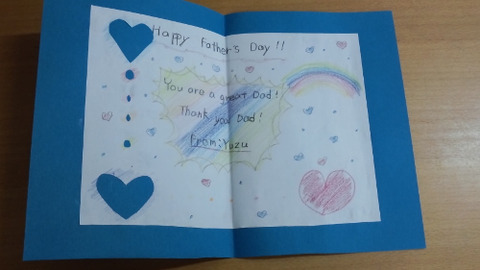 Happy Father's Day!!
You are a great Dad!
Thank you Dad!
From:Yuzu